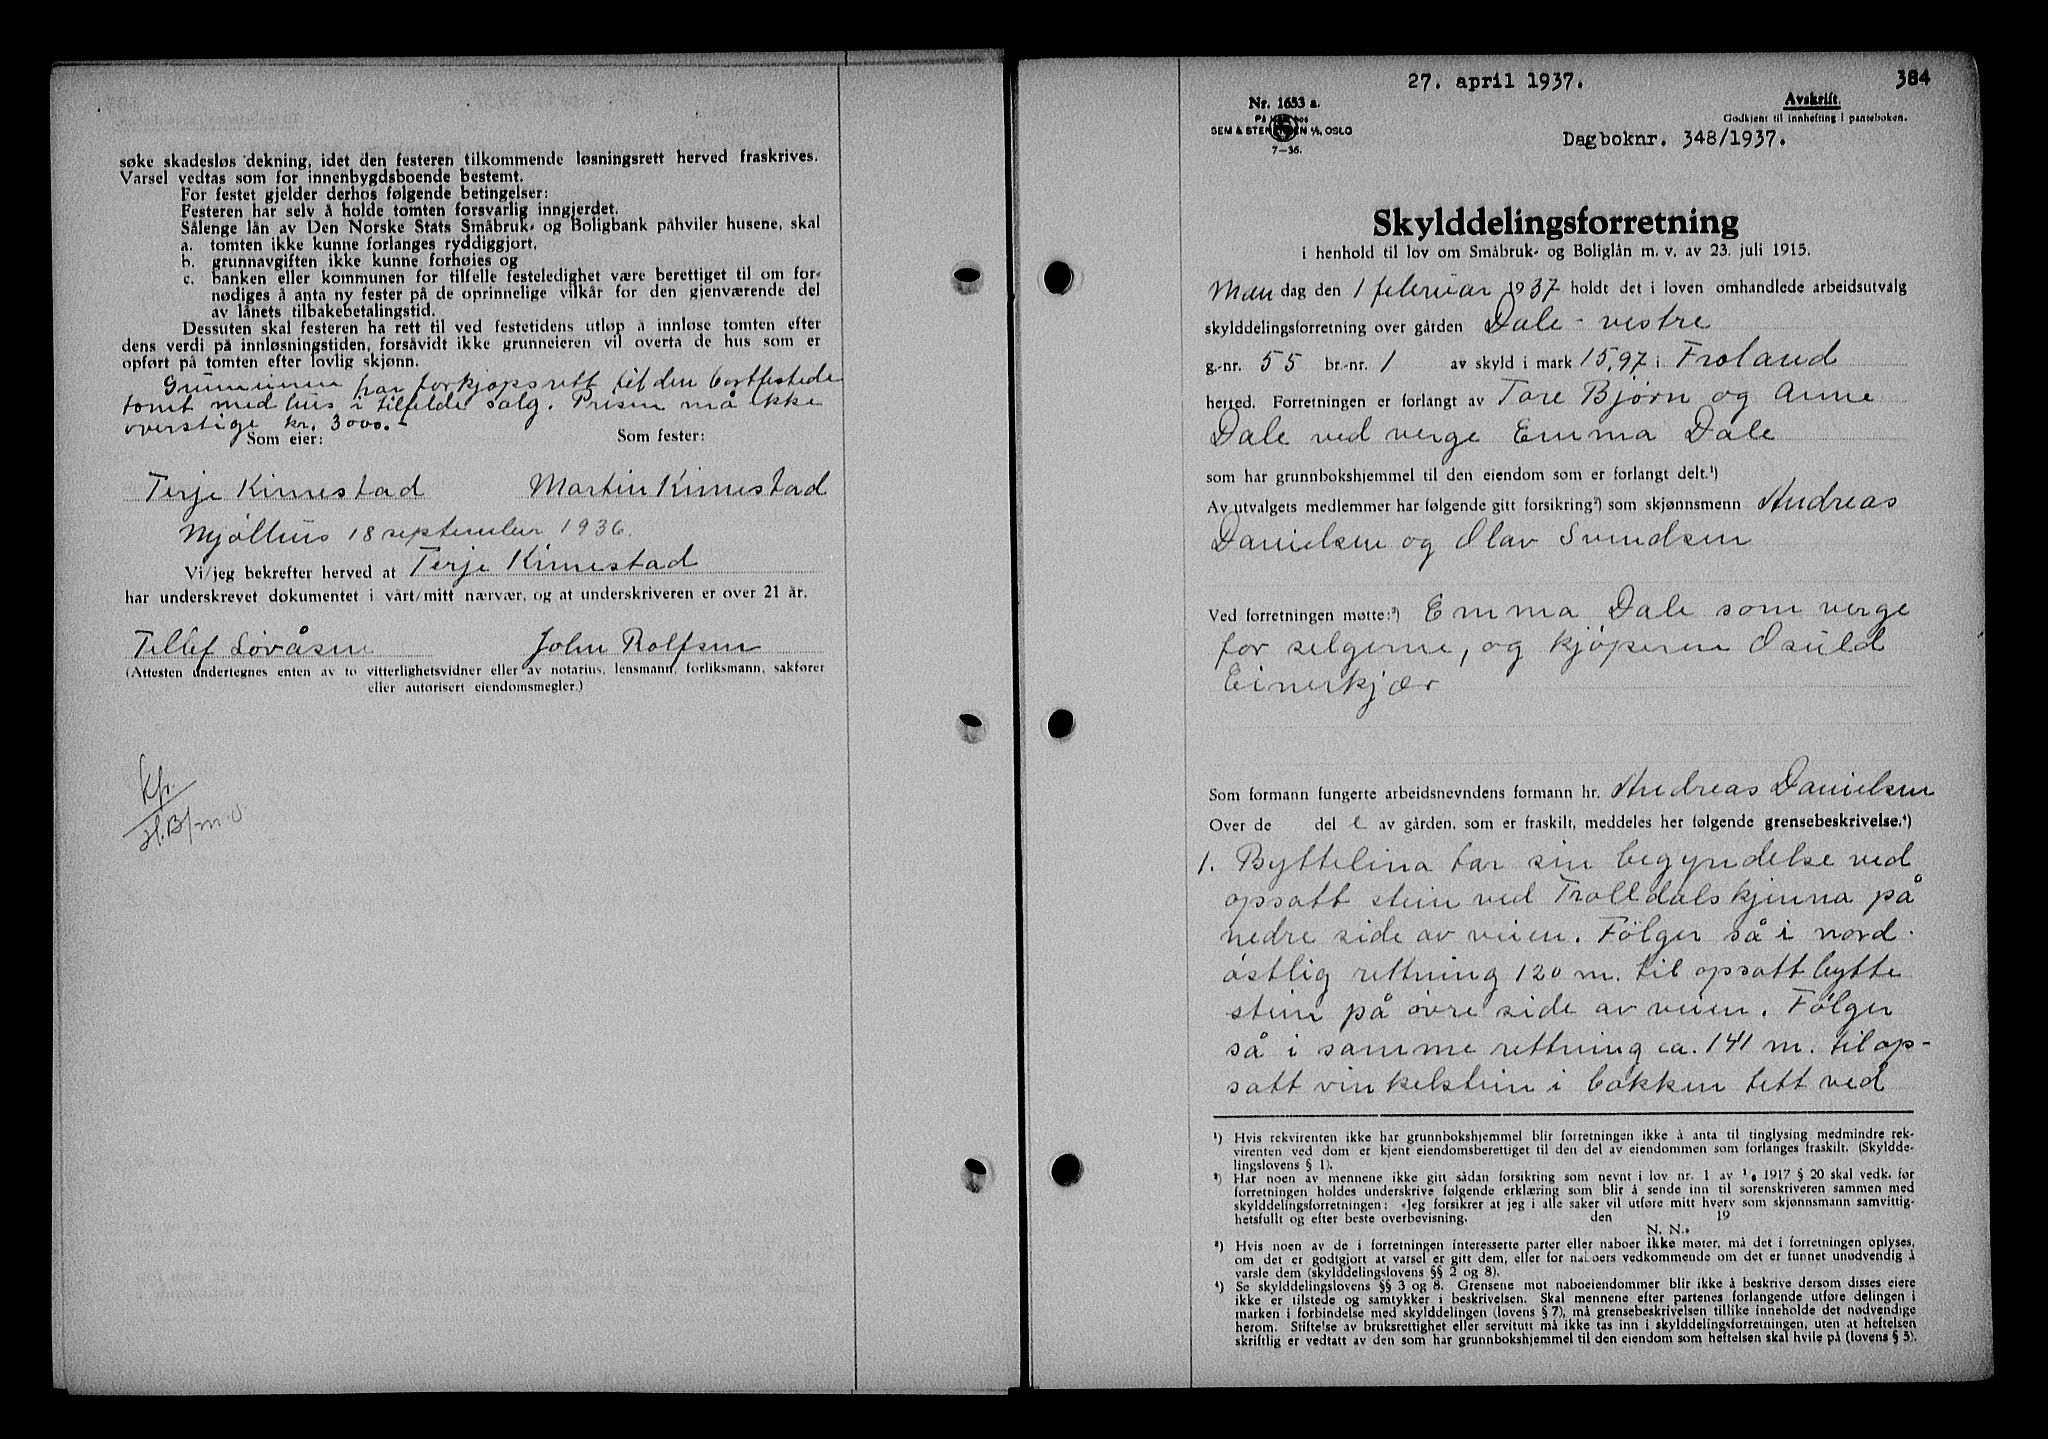 søke skadesløs dekning, idet den festeren tilkommende løsningsrett herved fraskrives.
Varsel vedtas som for innenbygdsboende bestemt.
For festet gjelder derhos følgende betingelser:
Festeren har selv å holde tomten forsvarlig inngjerdet.
Sålenge lån av Den Norske Stats Småbruk- og Boligbank påhviler husene, skal
a. tomten ikke kunne forlanges ryddiggjort,
b. grunnavgiften ikke kunne forhøies og
c. banken eller kommunen for tilfelle festeledighet være berettiget til om for-
nødiges å anta ny fester på de oprinnelige vilkår for den gjenværende del
av lånets tilbakebetalingstid.
Dessuten skal festeren ha rett til ved festetidens utløp å innløse tomten efter
dens verdi på innløsningstiden, forsåvidt ikke grunneieren vil overta de hus som er
opført på tomten efter lovlig skjønn.
Grunneieren har forkjøpsrett til den bortfestede
tomt med hus i tilfelde salg. Prisen må ikke
overstige kr. 3000.-
Som eier: Som fester:
Terje Kimestad Martin Kimestad
Mjøllhus 18 september 1936.
Vi/jeg bekrefter herved at Terje Kimestad
har underskrevet dokumentet i vårt/mitt nærvær, og at underskriveren er over 21 år.
Tellef Løvåsen John Rolfsen
(Attesten undertegnes enten av to vitterlighetsvidner eller av notarius, lensmann, forliksmann, sakfører
eller autorisert eiendomsmegler.)
Kfr.
27. april 1937. 384
Nr. 1653 a. Avskrift.
Godkjent til innhefting i panteboken.
SEM & STENERSEN A/S, OSLO
7-36.
Dagboknr. 348/1937.
Skylddelingsforretning
i henhold til lov om Småbruk- og Boliglån m. v. av 23. juli 1915.
Man dag den 1 februar 1937 holdt det i loven omhandlede arbeidsutvalg
skylddelingsforretning over gården Dale - vestre
g.-nr. 55 br.-nr. 1 av skyld i mark 15,97 i Froland
herred. Forretningen er forlangt av Tore Bjørn og Anne
Dale ved verge Emma Dale
som har grunnbokshjemmel til den eiendom som er forlangt delt.¹)
Av utvalgets medlemmer har følgende gitt forsikring²) som skjønnsmenn Andreas
Danielsen og Olav Svendsen
Ved forretningen møtte:³) Emma Dale som verge
for selgerne, og kjøperen Osuld
Einerkjær
Som formann fungerte arbeidsnevndens formann hr. Andreas Danielsen
Over de del e av gården, som er fraskilt, meddeles her følgende grensebeskrivelse.⁴)
1. Byttelina tar sin begyndelse ved
opsatt stein ved Trolldalskjenna på
nedre side av veien. Følger så i nord.
østlig rettning 120 m. til opsatt bytte
stein på øvre side av veien. Følger
så i samme rettning ca. 141 m. til op-
satt vinkelstein i bakken tett ved
¹) Hvis rekvirenten ikke har grunnbokshjemmel blir forretningen ikke å anta til tinglysing medmindre rek-
virenten ved dom er kjent eiendomsberettiget til den del av eiendommen som forlanges fraskilt. (Skyldde-
lingslovens § 1).
²) Har noen av mennene ikke gitt sådan forsikring som nevnt i lov nr. 1 av 1/6 1917 § 20 skal vedk. før
forretningen holdes underskrive følgende erklæring som blir å sende inn til sorenskriveren sammen med
skylddelingsforretningen: «Jeg forsikrer at jeg i alle saker vil utføre mitt hverv som skjønnsmann samvittig-
hetsfullt og efter beste overbevisning. den 19
N. N.»
³) Hvis noen av de i forretningen interesserte parter eller naboer ikke møter, må det i forretningen oplyses,
om det er godtgjort at varsel er gitt dem, eller for naboers vedkommende om det er funnet unødvendig å
varsle dem (skylddelingslovens §§ 2 og 8).
⁴) Se skylddelingslovens §§ 3 og 8. Grensene mot naboeiendommer blir ikke å beskrive dersom disses eiere
ikke er tilstede og samtykker i beskrivelsen. Skal mennene efter partenes forlangende utføre delingen i
marken i forbindelse med skylddelingen (lovens § 7), må grensebeskrivelsen tillike inneholde det nødvendige
herom. Stiftelse av bruksrettighet eller servitutt må ikke tas inn i skylddelingsforretningen, uten at heftelsen
skriftlig er vedtatt av den som har grunnbokshjemmel til den eiendom som heftelsen skal hvile på (lovens § 5).